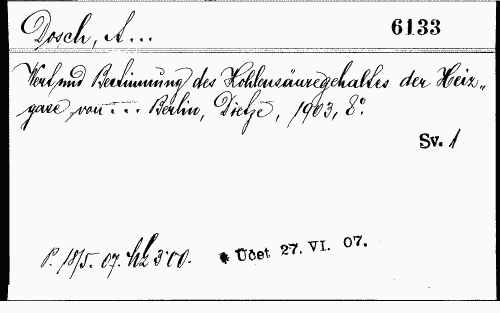 Dosch, A...
6133
Wert und Bestimmung des Kohlensäuregehaltes der Heiz„
gase von ... Berlin, Dietze, 1903, 8°.
Sv. 1
P. 18/5. 07. 3·00.
* Účet 27. VI. 07.